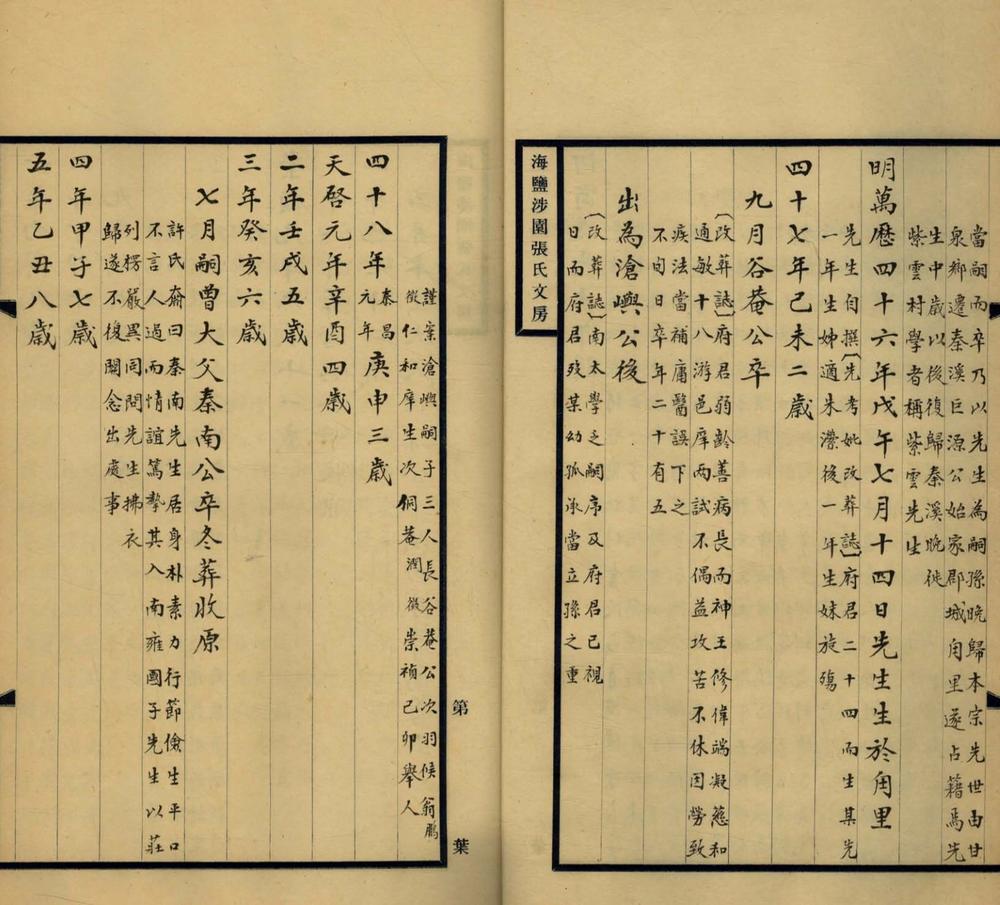 當嗣而卒乃以先生為嗣孫晚歸本宗先世由甘
泉鄉遷秦溪巨源公始家郡城甪里遂占籍焉先
生中歲以後復歸秦溪晚徙
紫雲村學者稱紫雲先生
明萬歷四十六年戊午七月十四日先生生於甪里
先生自撰〔先考妣改葬誌〕府君二十四而生某先
一年生姊適朱瀠後一年生妹旋殤
四十七年己未二歲
九月谷菴公卒
〔改葬誌〕府君弱齡善病長而神王修偉端凝慈和
通敏十八游邑庠兩試不偶益攻苦不休因勞致
疾法當補庸醫誤下之
不旬日卒年二十有五
出為滄嶼公後
〔改葬誌〕南太學乏嗣序及府君已視
日而府君歿某幼孤承當立孫之重
海鹽涉園張氏文房
謹案滄嶼嗣子三人長谷菴公次羽候翁鵬
徵仁和庠生次侗菴潤徵崇禎己卯舉人
四十八年泰昌元年庚申三歲
天啓元年辛酉四歲
二年壬戌五歲
三年癸亥六歲
七月嗣曾大父秦南公卒冬葬收原
許氏齋曰秦南先生居身朴素力行節儉生平口
不言人過而情誼篤摯其入南雍國子先生以莊
列楞嚴異同問先生拂衣
歸遂不復關念出處事
四年甲子七歲
五年乙丑八歲
第 葉